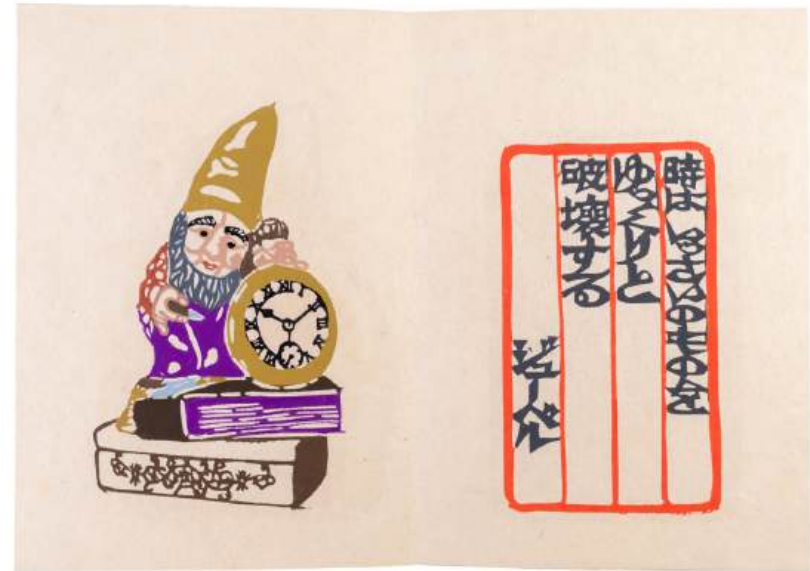 時は いっさいのものを
ゆっくりと
破壊する
ジューベル